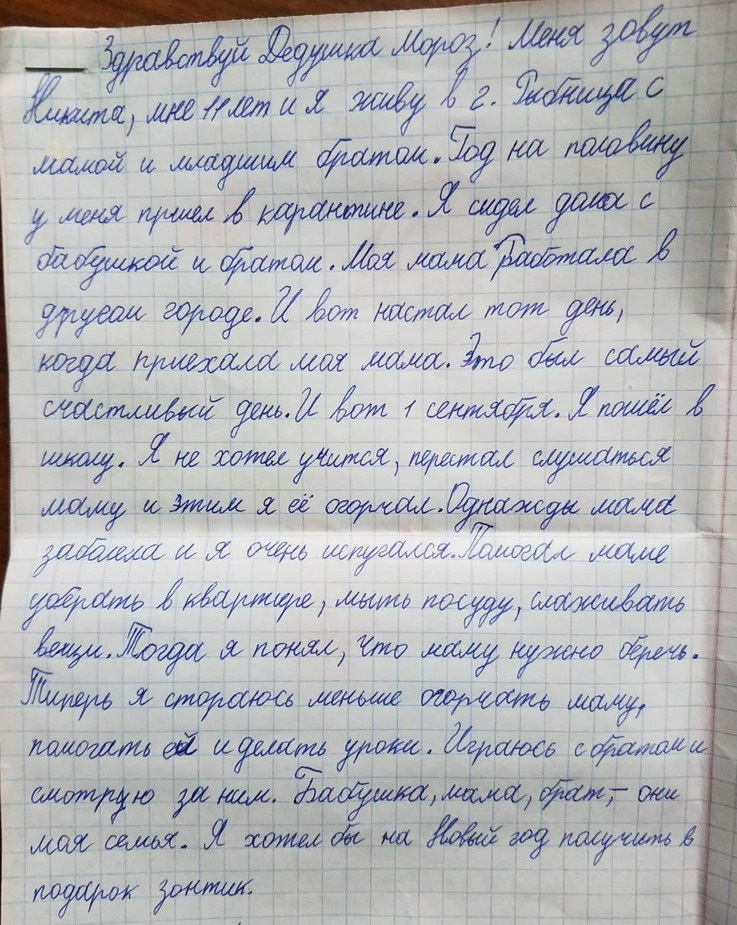 Здравствуй Дедушка Мороз! Меня зовут
Никита, мне 11 лет и я живу в г. Рыбница с
мамой и младшим братом. Год на половину
у меня пришел в карантине. Я сидел дома с
бабушкой и братом. Моя мама работала в
другом городе. И вот настал тот день,
когда приехала моя мама. Это был самый
счастливый день. И вот 1 сентября. Я пошёл в
школу. Я не хотел учится, перестал слушаться
маму и этим я её огорчал. Однажды мама
заболела и я очень испугался. Помогал маме
уберать в квартире, мыть посуду, слаживать
вещи. Тогда я понял, что маму нужно беречь.
Типерь я стораюсь меньше огорчать маму,
помогать ей и делать уроки. Играюсь с братом и
смотрую за ним. Бабушка, мама, брат, – они
моя семья. Я хотел бы на Новый год получить в
подарок зонтик.